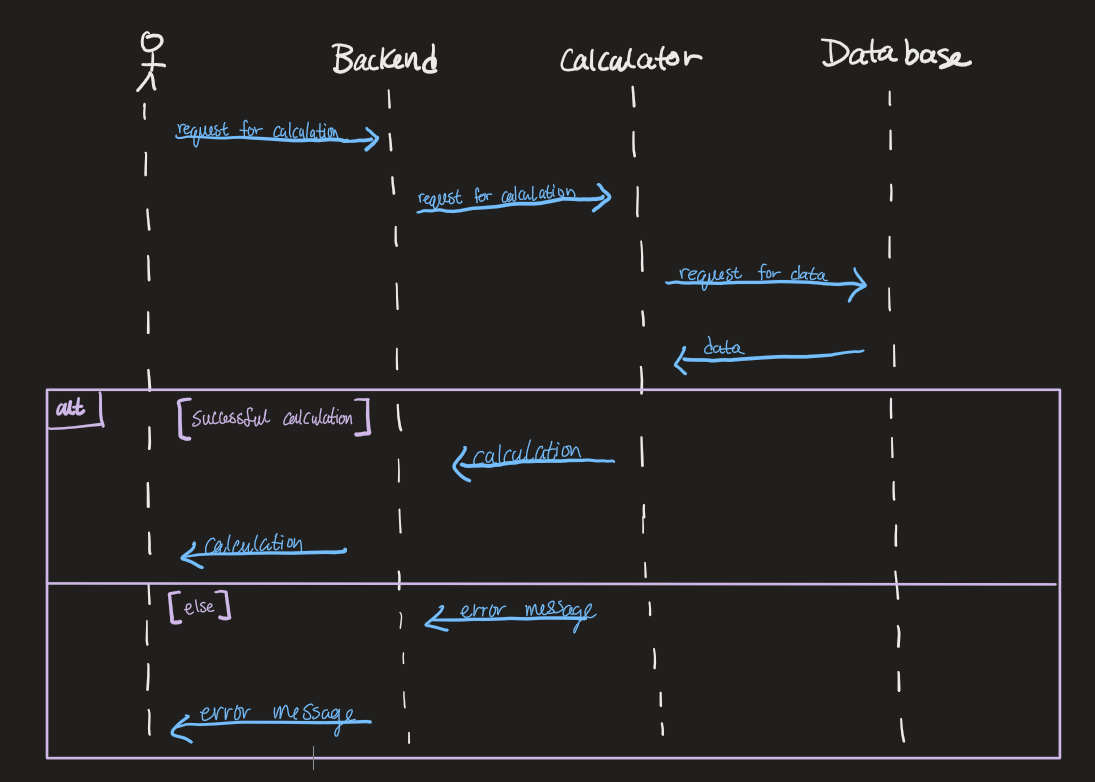 Backend
Calculator
Database
request for calculation
request for calculation
request for data
data
alt
[successful calculation]
calculation
calculation
[else]
error message
error message